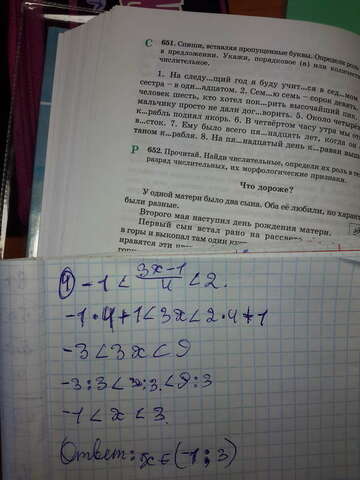 С 651. Спиши, вставляя пропущенные буквы. Определи роль
в предложении. Укажи, порядковое (п) или количес
числительное.
1. На следу...щий год я буду учит...ся в сед...мом
сестра – в оди...адцатом. 2. Сем...ю семь – сорок девять.
человек шесть, кто хотел пок...рить высочайший пик,
мальчику просто не дали дог...ворить. 5. Около четырё
к...рабль поднял якорь. 6. В четвёртом часу утра мы от
в...сток. 7. Ему было всего пя...надцать лет, когда он
таном к...рабля. 8. На пя...надцатый день к...раван выш
Р 652. Прочитай. Найди числительные, определи их роль в
разряд числительных, их морфологические признаки.
Что дороже?
У одной матери было два сына. Оба её любили, по харак
были разные.
Второго мая наступил день рождения матери.
Первый сын встал рано на рассвете
в горы и выкопал там один
нравятся эти
④ -1 < (3x-1)/4 < 2.
-1·4+1<3x<2·4+1
-3<3x<9
-3:3<3x:3<9:3
-1<x<3.
Ответ: x∈(-1;3)